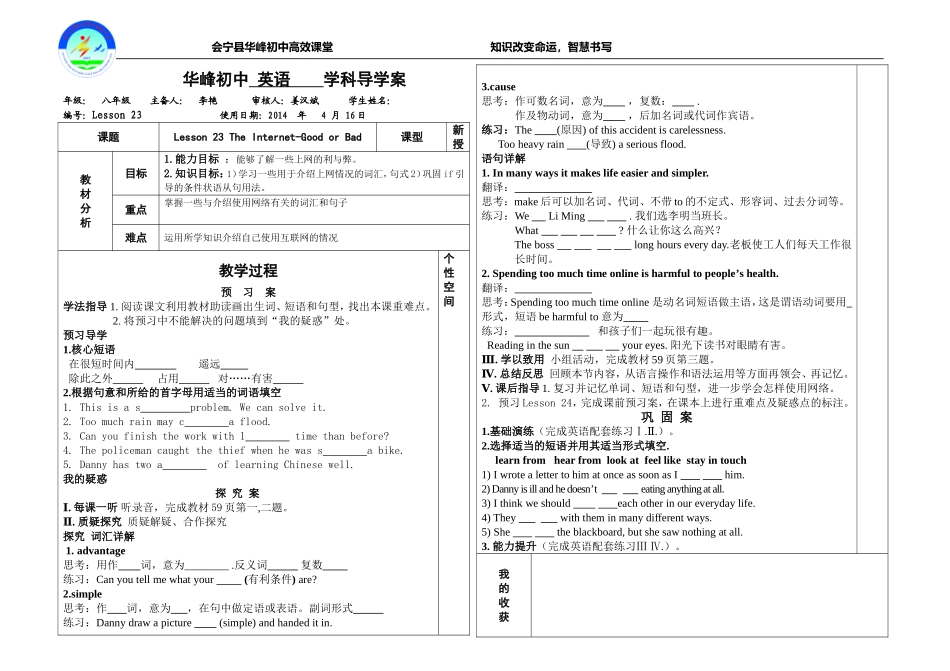 会宁县华峰初中高效课堂 知识改变命运，智慧书写
华峰初中 英语 学科导学案
年级： 八年级 主备人： 李艳 审核人：姜汉斌 学生姓名：
编号：Lesson 23 使用日期：2014 年 4 月 16日
课题 Lesson 23 The Internet-Good or Bad 课型 新授
教材分析
目标
1.能力目标 ：能够了解一些上网的利与弊。
2.知识目标：1)学习一些用于介绍上网情况的词汇，句式2)巩固 if引
导的条件状语从句用法。
重点 掌握一些与介绍使用网络有关的词汇和句子
难点 运用所学知识介绍自己使用互联网的情况
教学过程
个性空间
预 习 案
学法指导 1.阅读课文利用教材助读画出生词、短语和句型，找出本课重难点。
2.将预习中不能解决的问题填到“我的疑惑”处。
预习导学
1.核心短语
在很短时间内________ 遥远_____
除此之外______ 占用______ 对……有害______
2.根据句意和所给的首字母用适当的词语填空
1. This is a s_________problem. We can solve it.
2. Too much rain may c________a flood.
3. Can you finish the work with l________ time than before?
4. The policeman caught the thief when he was s________a bike.
5. Danny has two a________ of learning Chinese well.
我的疑惑
探 究 案
Ⅰ.每课一听 听录音，完成教材 59 页第一,二题。
Ⅱ.质疑探究 质疑解疑、合作探究
探究 词汇详解
1. advantage
思考：用作____词，意为________ .反义词______ 复数_____
练习：Can you tell me what your _____ (有利条件) are?
2.simple
思考：作____词，意为___，在句中做定语或表语。副词形式______
练习：Danny draw a picture ____ (simple) and handed it in.
3.cause
思考：作可数名词，意为____ ，复数：____ .
作及物动词，意为____ ，后加名词或代词作宾语。
练习：The ____(原因) of this accident is carelessness.
Too heavy rain ____(导致) a serious flood.
语句详解
1. In many ways it makes life easier and simpler.
翻译：______________
思考：make 后可以加名词、代词、不带 to 的不定式、形容词、过去分词等。
练习：We ___ Li Ming ___ ____ . 我们选李明当班长。
What ____ ___ ___ ____ ? 什么让你这么高兴?
The boss ___ ___ ___ ___ long hours every day.老板使工人们每天工作很
长时间。
2. Spending too much time online is harmful to people’s health.
翻译：______________
思考：Spending too much time online 是动名词短语做主语，这是谓语动词要用_
形式，短语 be harmful to 意为_____
练习：______________ 和孩子们一起玩很有趣。
Reading in the sun __ ___ __ your eyes. 阳光下读书对眼睛有害。
Ⅲ. 学以致用 小组活动，完成教材 59 页第三题。
Ⅳ. 总结反思 回顾本节内容，从语言操作和语法运用等方面再领会、再记忆。
Ⅴ. 课后指导 1. 复习并记忆单词、短语和句型，进一步学会怎样使用网络。
2. 预习 Lesson 24，完成课前预习案，在课本上进行重难点及疑惑点的标注。
巩 固 案
1.基础演练（完成英语配套练习Ⅰ.Ⅱ.）。
2.选择适当的短语并用其适当形式填空.
learn from hear from look at feel like stay in touch
1) I wrote a letter to him at once as soon as I ____ ____ him.
2) Danny is ill and he doesn’t ___ ___ eating anything at all.
3) I think we should ____ ____each other in our everyday life.
4) They ___ ___ with them in many different ways.
5) She ____ ____ the blackboard, but she saw nothing at all.
3. 能力提升（完成英语配套练习Ⅲ Ⅳ.）。
我的收获